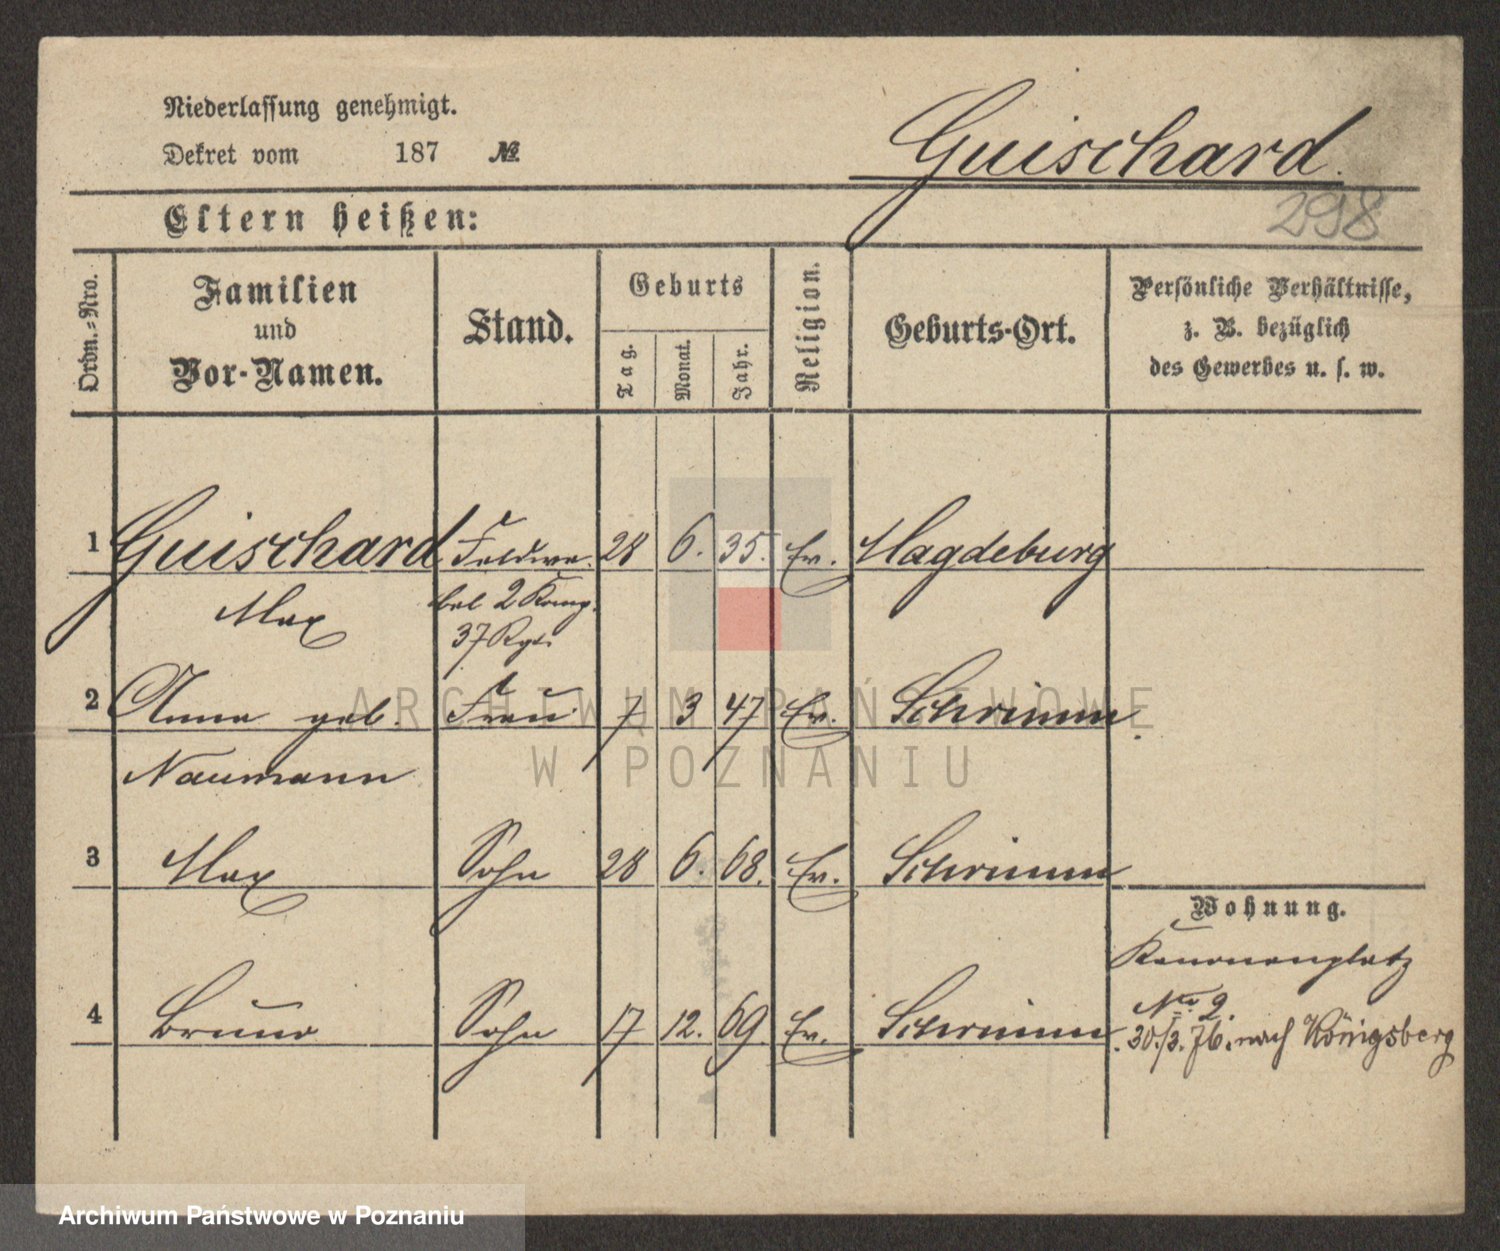 Niederlassung genehmigt.
Dekret vom 187 №
Guischard.
298
Eltern heißen:
Ordn.-Nro.
Familien
und
Vor-Namen.
Stand.
Geburts
Tag.
Monat.
Jahr.
Religion.
Geburts-Ort.
Persönliche Verhältnisse,
z. B. bezüglich
des Gewerbes u. s. w.
1 Guischard Feldwe- 28 6. 35. Ev. Magdeburg
Max bel 2 Komp.
37 Rgt.
2 Anna geb. Frau 7 3 47 Ev. Schrimm.
Naumann
3 Max Sohn 28 6. 68. Ev. Schrimm
Wohnung.
Kanonenplatz
No 2.
4 Bruno Sohn 17 12. 69. Ev. Schrimm.
30./3. 76. nach Königsberg
ARCHIWUM PAŃSTWOWE
W POZNANIU
Archiwum Państwowe w Poznaniu